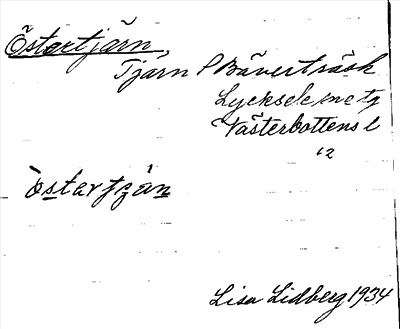 Östertjärn
Tjärn S Bäverträsk
Lycksele
Västerbottens l
12
östertjän
Lisa Lidberg 1934